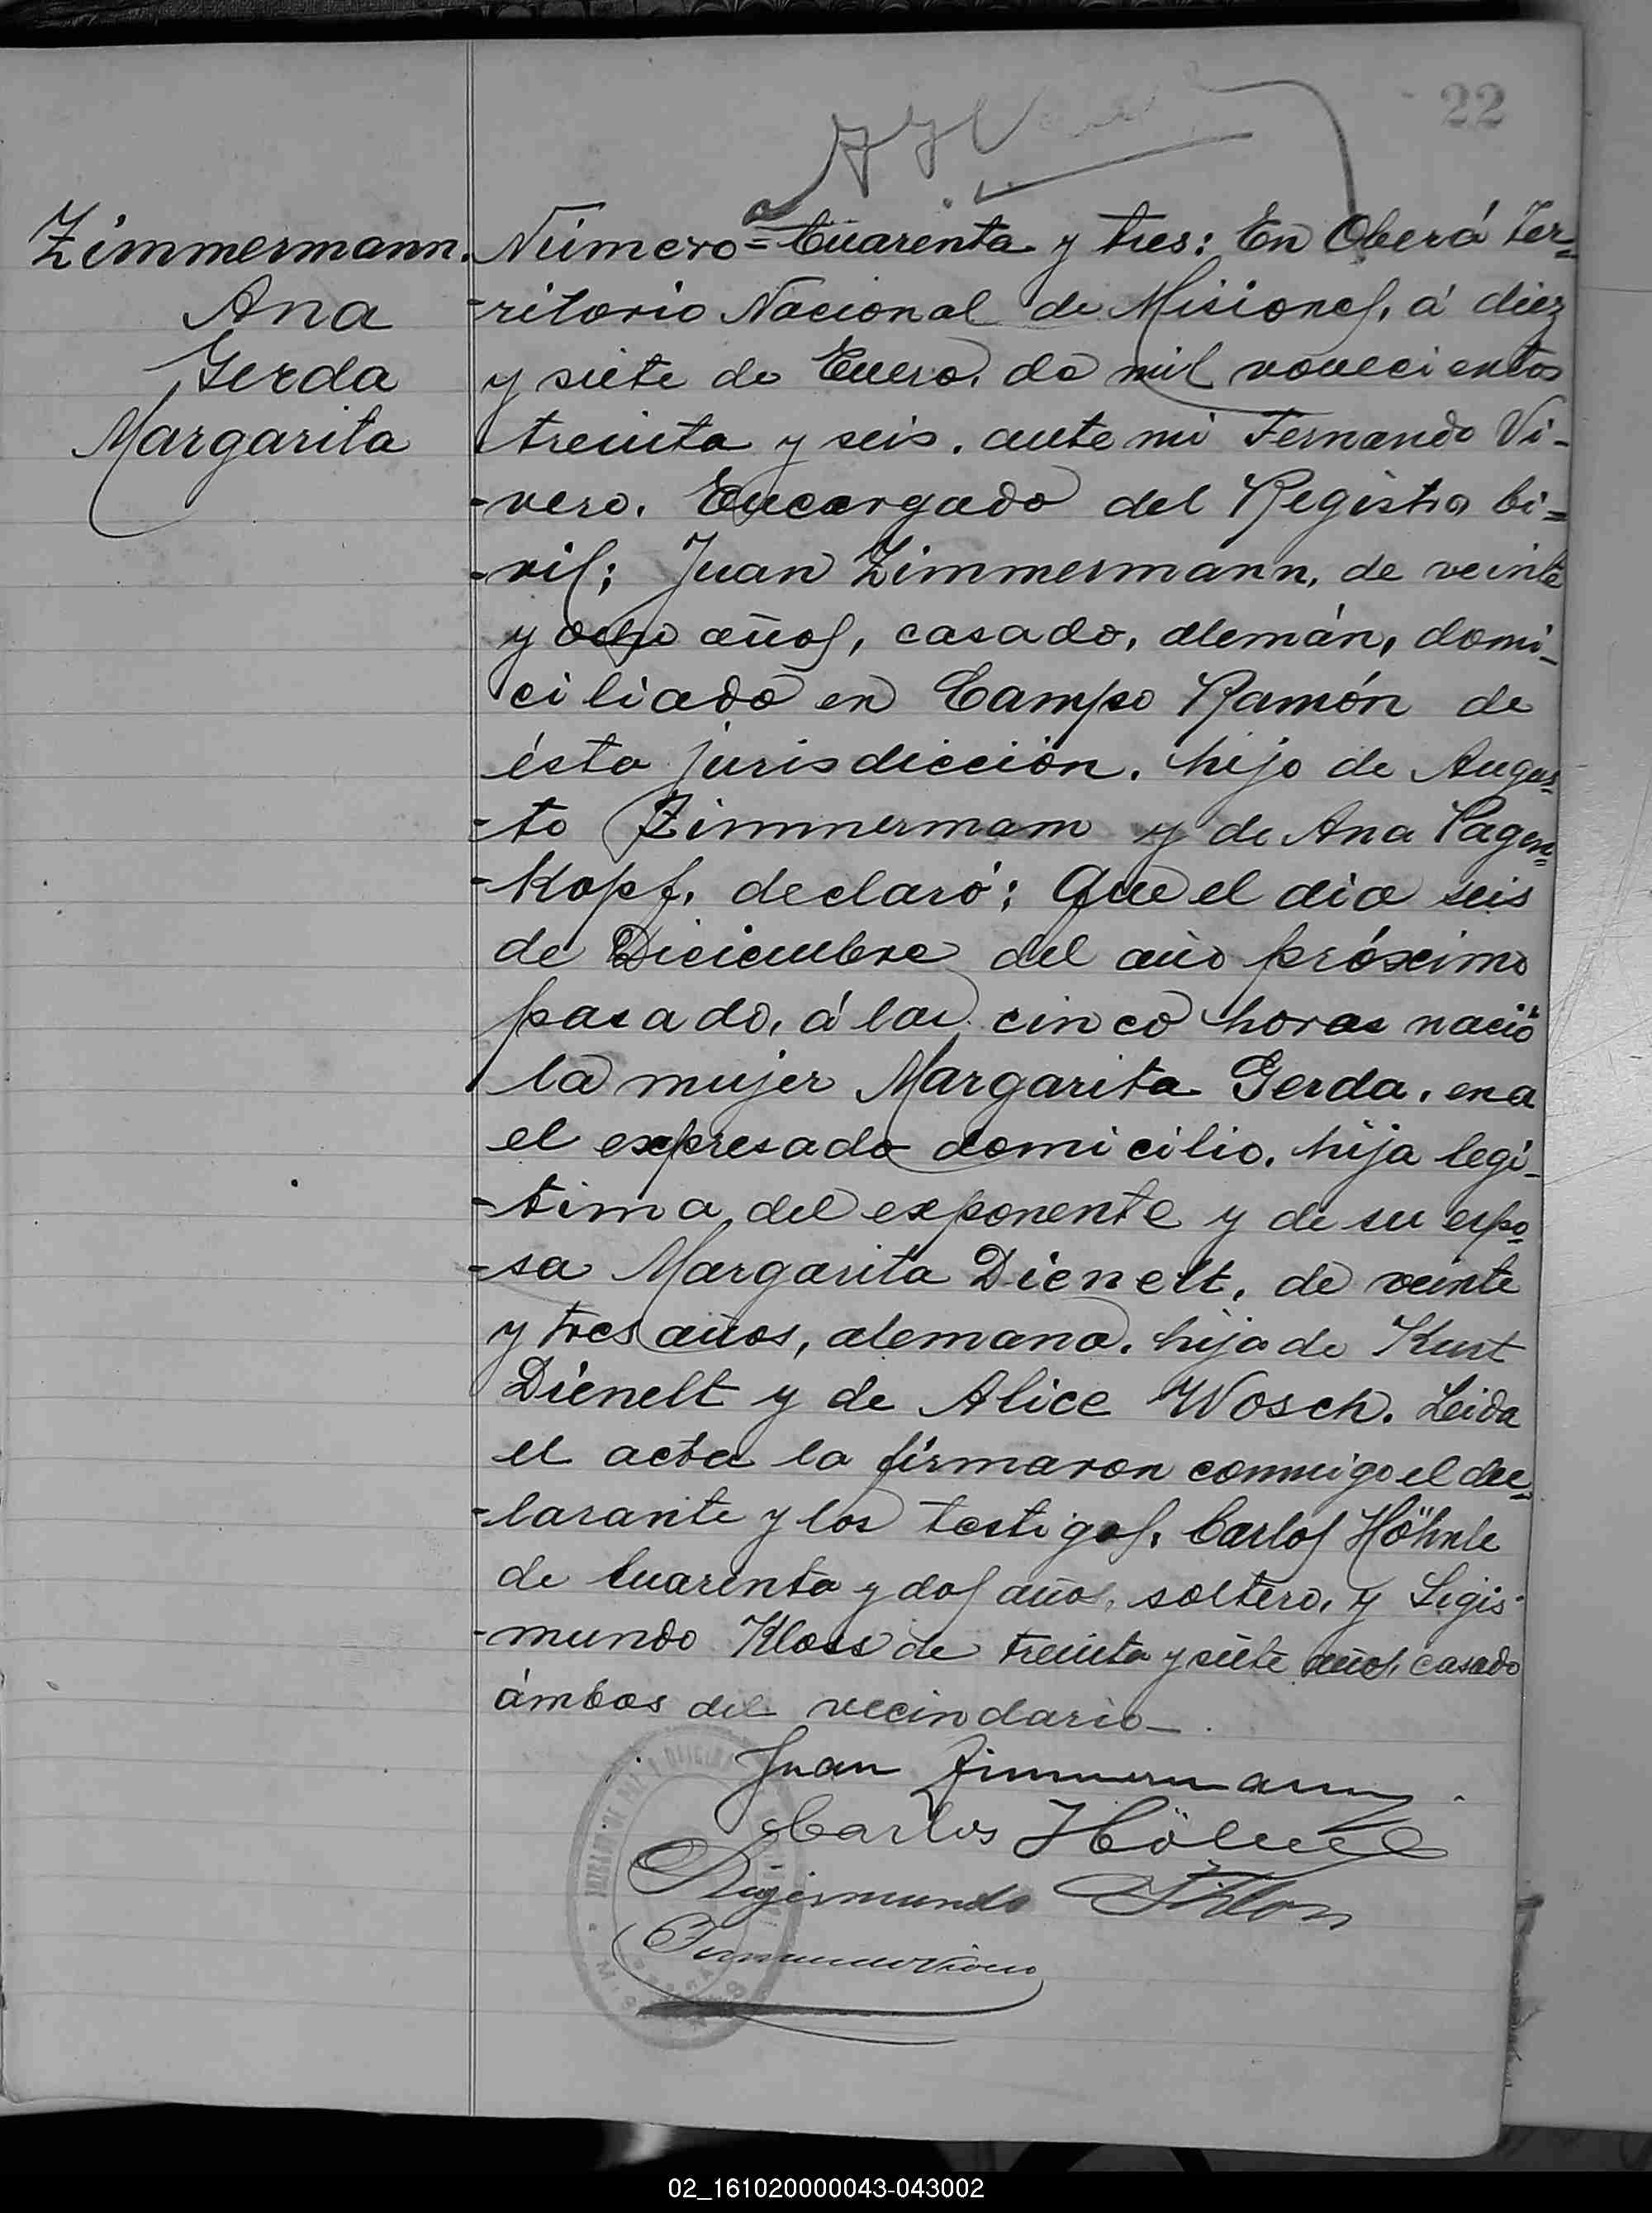 22
Zimmermann.
Ana
Gerda
Margarita
Número = Cuarenta y tres: En Oberá Ter=
-ritorio Nacional de Misiones, á diez
y siete de Enero, de mil novecientos
treinta y seis, ante mi Fernando Vi-
-vero, Encargado del Registro Ci=
-vil; Juan Zimmermann, de veinte
y ocho años, casado, alemán, domi-
ciliado en Campo Ramón de
ésta jurisdicción, hijo de Augus=
-to Zimmermam y de Ana Pagen=
-Kopf, declaró: Que el dia seis
de Diciembre del año próximo
pasado, á las cinco horas nació
la mujer Margarita Gerda, en
el expresado domicilio, hija legi-
-tima del exponente y de su espo-
-sa Margarita Dienelt, de veinte
y tres años, alemana, hija de Kurt
Dienelt y de Alice Wosch. Leida
el acta la firmaron conmigo el dec=
-larante y los testigos, Carlos Höhnle
de cuarenta y dos años, soltero, y Sigis-
-mundo Kloss de treinta y siete años, casado
ámbos del vecindario-.
Juan Zimmermann
Carlos
Sigismundo
02_161020000043-043002